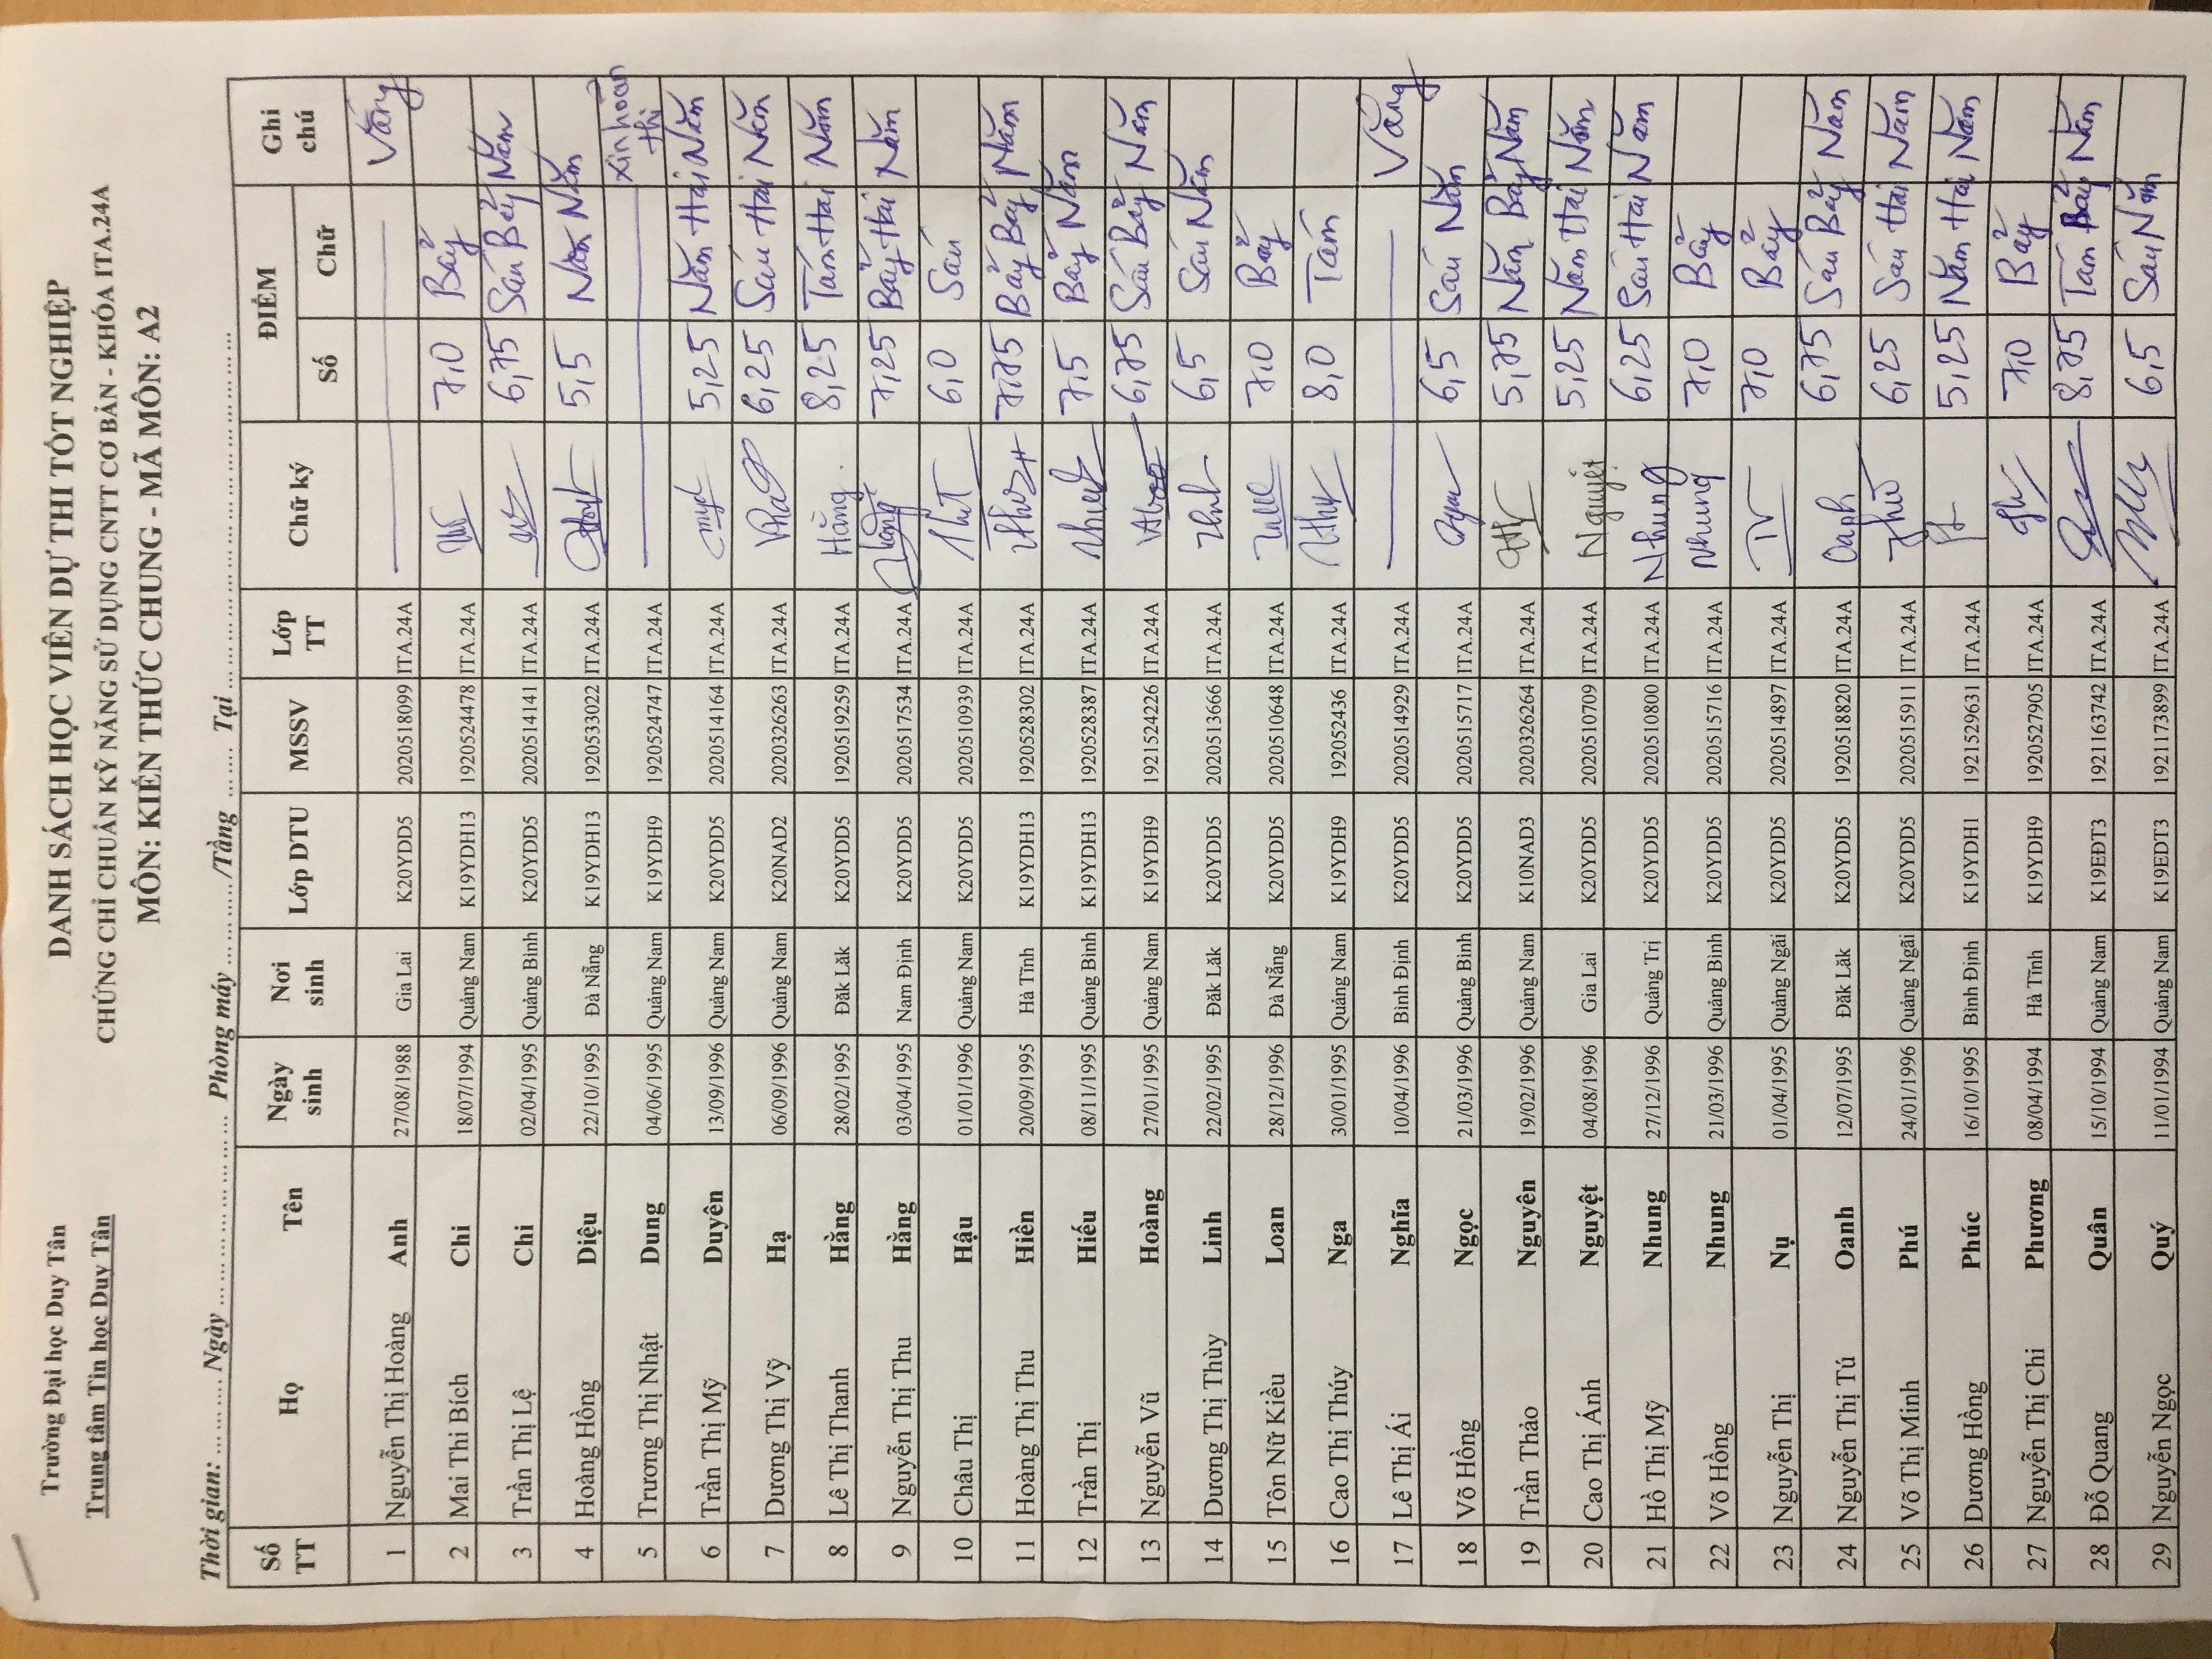 Trường Đại học Duy Tân
Trung tâm Tin học Duy Tân
DANH SÁCH HỌC VIÊN DỰ THI TỐT NGHIỆP
CHỨNG CHỈ CHUẨN KỸ NĂNG SỬ DỤNG CNTT CƠ BẢN - KHÓA ITA.24A
MÔN: KIẾN THỨC CHUNG - MÃ MÔN: A2
Thời gian: ............ Ngày ........................ Phòng máy ............/Tầng ......... Tại ........................
Số TT Họ Tên Ngày sinh Nơi sinh Lớp DTU MSSV Lớp TT Chữ ký ĐIỂM Số Chữ Ghi chú
1 Nguyễn Thị Hoàng Anh 27/08/1988 Gia Lai K20YDD5 2020518099 ITA.24A Vắng
2 Mai Thi Bích Chi 18/07/1994 Quảng Nam K19YDH13 1920524478 ITA.24A 7,0 Bảy
3 Trần Thị Lệ Chi 02/04/1995 Quảng Bình K20YDD5 2020514141 ITA.24A 6,75 Sáu Bảy Năm
4 Hoàng Hồng Diệu 22/10/1995 Đà Nẵng K19YDH13 1920533022 ITA.24A 5,5 Năm Năm
5 Trương Thị Nhật Dung 04/06/1995 Quảng Nam K19YDH9 1920524747 ITA.24A xin hoãn thi
6 Trần Thị Mỹ Duyên 13/09/1996 Quảng Nam K20YDD5 2020514164 ITA.24A 5,25 Năm Hai Năm
7 Dương Thị Vỹ Hạ 06/09/1996 Quảng Nam K20NAD2 2020326263 ITA.24A 6,25 Sáu Hai Năm
8 Lê Thị Thanh Hằng 28/02/1995 Đăk Lăk K20YDD5 1920519259 ITA.24A Hằng 8,25 Tám Hai Năm
9 Nguyễn Thị Thu Hằng 03/04/1995 Nam Định K20YDD5 2020517534 ITA.24A 7,25 Bảy Hai Năm
10 Châu Thị Hậu 01/01/1996 Quảng Nam K20YDD5 2020510939 ITA.24A 6,0 Sáu
11 Hoàng Thị Thu Hiền 20/09/1995 Hà Tĩnh K19YDH13 1920528302 ITA.24A 7,75 Bảy Bảy Năm
12 Trần Thị Hiếu 08/11/1995 Quảng Bình K19YDH13 1920528387 ITA.24A 7,5 Bảy Năm
13 Nguyễn Vũ Hoàng 27/01/1995 Quảng Nam K19YDH9 1921524226 ITA.24A 6,75 Sáu Bảy Năm
14 Dương Thị Thùy Linh 22/02/1995 Đăk Lăk K20YDD5 2020513666 ITA.24A 6,5 Sáu Năm
15 Tôn Nữ Kiều Loan 28/12/1996 Đà Nẵng K20YDD5 2020510648 ITA.24A 7,0 Bảy
16 Cao Thị Thúy Nga 30/01/1995 Quảng Nam K19YDH9 192052436 ITA.24A 8,0 Tám
17 Lê Thị Ái Nghĩa 10/04/1996 Bình Định K20YDD5 2020514929 ITA.24A Vắng
18 Võ Hồng Ngọc 21/03/1996 Quảng Bình K20YDD5 2020515717 ITA.24A 6,5 Sáu Năm
19 Trần Thảo Nguyên 19/02/1996 Quảng Nam K10NAD3 2020326264 ITA.24A 5,75 Năm Bảy Năm
20 Cao Thị Ánh Nguyệt 04/08/1996 Gia Lai K20YDD5 2020510709 ITA.24A Nguyệt 5,25 Năm Hai Năm
21 Hồ Thị Mỹ Nhung 27/12/1996 Quảng Trị K20YDD5 2020510800 ITA.24A Nhung 6,25 Sáu Hai Năm
22 Võ Hồng Nhung 21/03/1996 Quảng Bình K20YDD5 2020515716 ITA.24A Nhung 7,0 Bảy
23 Nguyễn Thị Nụ 01/04/1995 Quảng Ngãi K20YDD5 2020514897 ITA.24A 7,0 Bảy
24 Nguyễn Thị Tú Oanh 12/07/1995 Đăk Lăk K20YDD5 1920518820 ITA.24A Oanh 6,75 Sáu Bảy Năm
25 Võ Thị Minh Phú 24/01/1996 Quảng Ngãi K20YDD5 2020515911 ITA.24A 6,25 Sáu Hai Năm
26 Dương Hồng Phúc 16/10/1995 Bình Định K19YDH1 1921529631 ITA.24A 5,25 Năm Hai Năm
27 Nguyễn Thị Chi Phương 08/04/1994 Hà Tĩnh K19YDH9 1920527905 ITA.24A 7,0 Bảy
28 Đỗ Quang Quân 15/10/1994 Quảng Nam K19EĐT3 1921163742 ITA.24A 8,75 Tám Bảy Năm
29 Nguyễn Ngọc Quý 11/01/1994 Quảng Nam K19EDT3 1921173899 ITA.24A 6,5 Sáu Năm